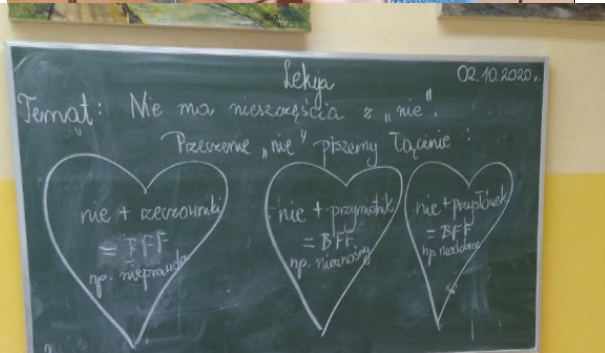 Lekcja
02.10.2020r.
Temat: Nie ma nieszczęścia z „nie".
Przeczenie „nie" piszemy łącznie:
nie + rzeczowniki
= BFF
np. nieprawda
nie + przymiotnik
= BFF
np. nieznośny
nie + przysłówek
= BFF
np. niedobrze